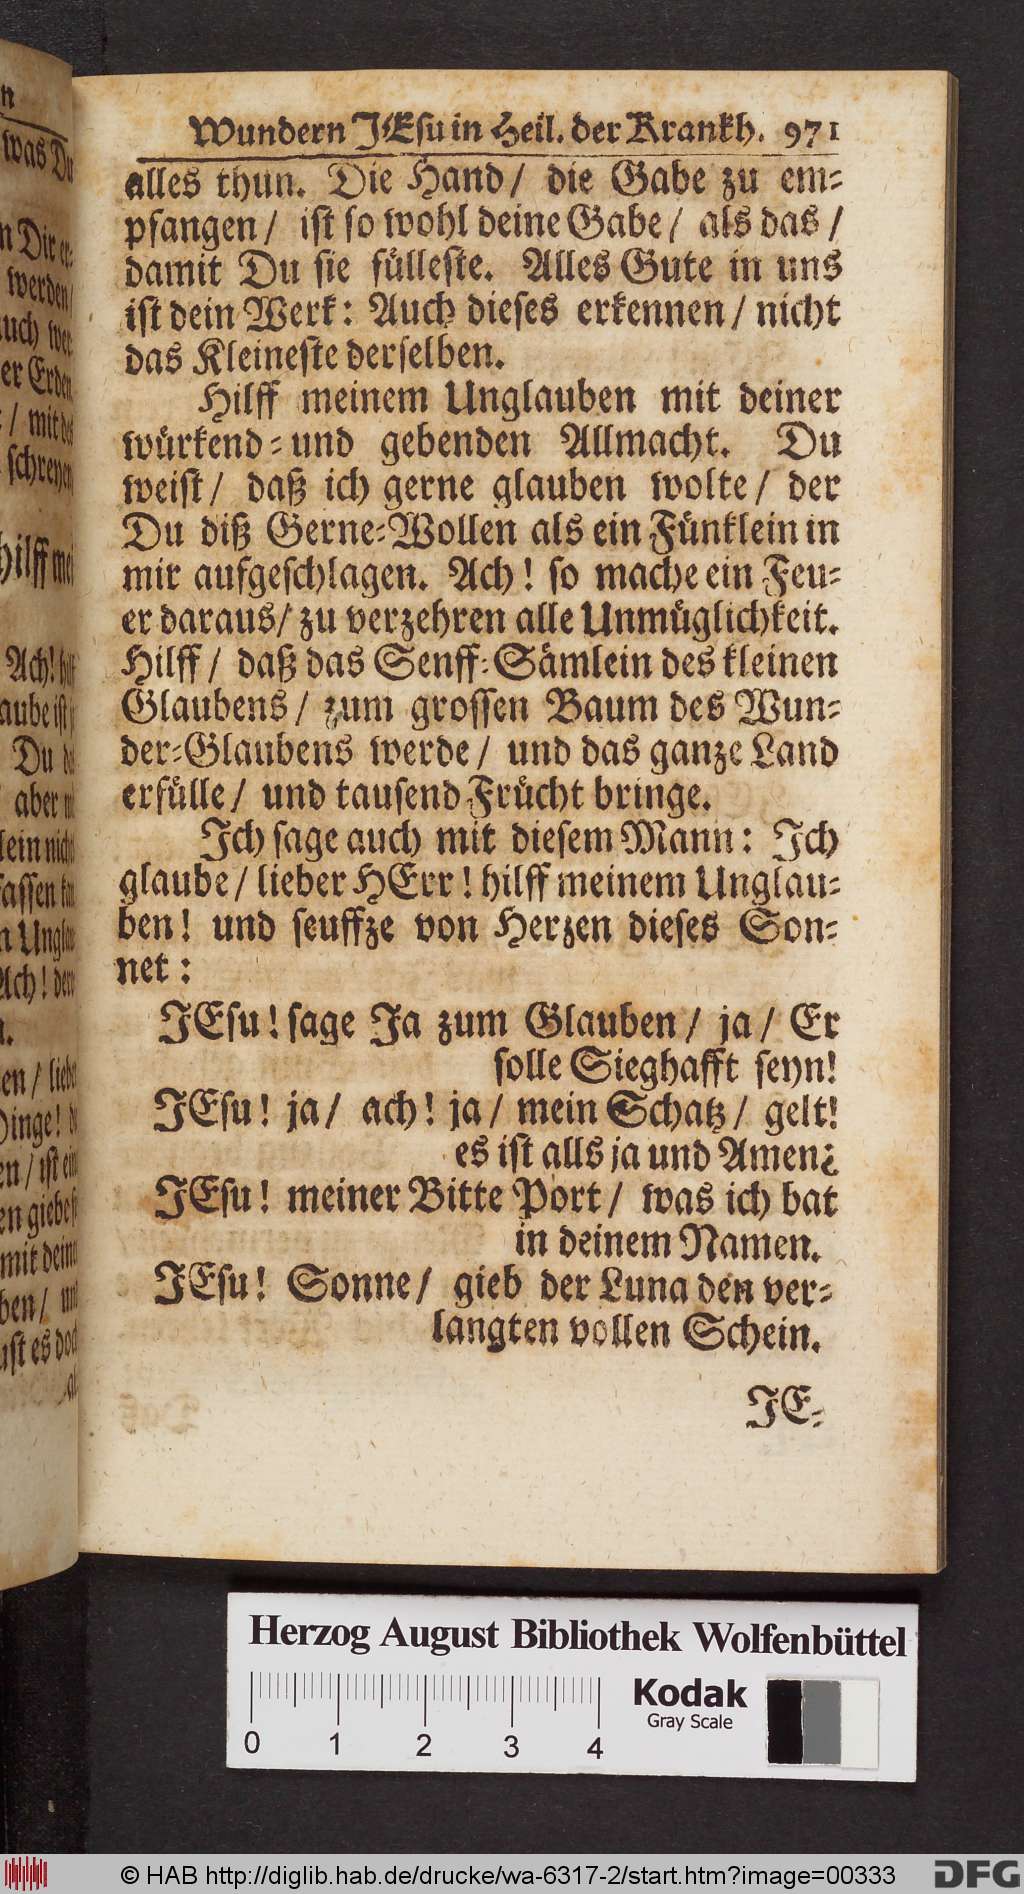 Wundern JEsu in Heil. der Krankh. 971
alles thun. Die Hand/ die Gabe zu em-
pfangen/ ist so wohl deine Gabe/ als das/
damit Du sie fülleste. Alles Gute in uns
ist dein Werk: Auch dieses erkennen/ nicht
das Kleineste derselben.
Hilff meinem Unglauben mit deiner
würkend- und gebenden Allmacht. Du
weist/ daß ich gerne glauben wolte/ der
Du diß Gerne-Wollen als ein Fünklein in
mir aufgeschlagen. Ach! so mache ein Feu-
er daraus/ zu verzehren alle Unmüglichkeit.
Hilff/ daß das Senff-Sämlein des kleinen
Glaubens/ zum grossen Baum des Wun-
der-Glaubens werde/ und das ganze Land
erfülle/ und tausend Frücht bringe.
Ich sage auch mit diesem Mann: Ich
glaube/ lieber HErr! hilff meinem Unglau-
ben! und seuffze von Herzen dieses Son-
net:
JEsu! sage Ja zum Glauben/ ja/ Er
solle Sieghafft seyn!
JEsu! ja/ ach! ja/ mein Schatz/ gelt!
es ist alls ja und Amen¿
JEsu! meiner Bitte Port/ was ich bat
in deinem Namen.
JEsu! Sonne/ gieb der Luna den ver-
langten vollen Schein.
JE-
was Du
n Dir er-
werden/
auch wer-
er Erden
/ mit des
schreyen
hilff mei
Ach! hilff
aube ist
Du
aber
lein nicht
fassen
n Unglau
Ach!
en/ liebe
Dinge!
en/ ist ein
en giebest
mit deine
ben/
ust es doch
al
Herzog August Bibliothek Wolfenbüttel
Kodak
Gray Scale
0 1 2 3 4
© HAB http://diglib.hab.de/drucke/wa-6317-2/start.htm?image=00333
DFG